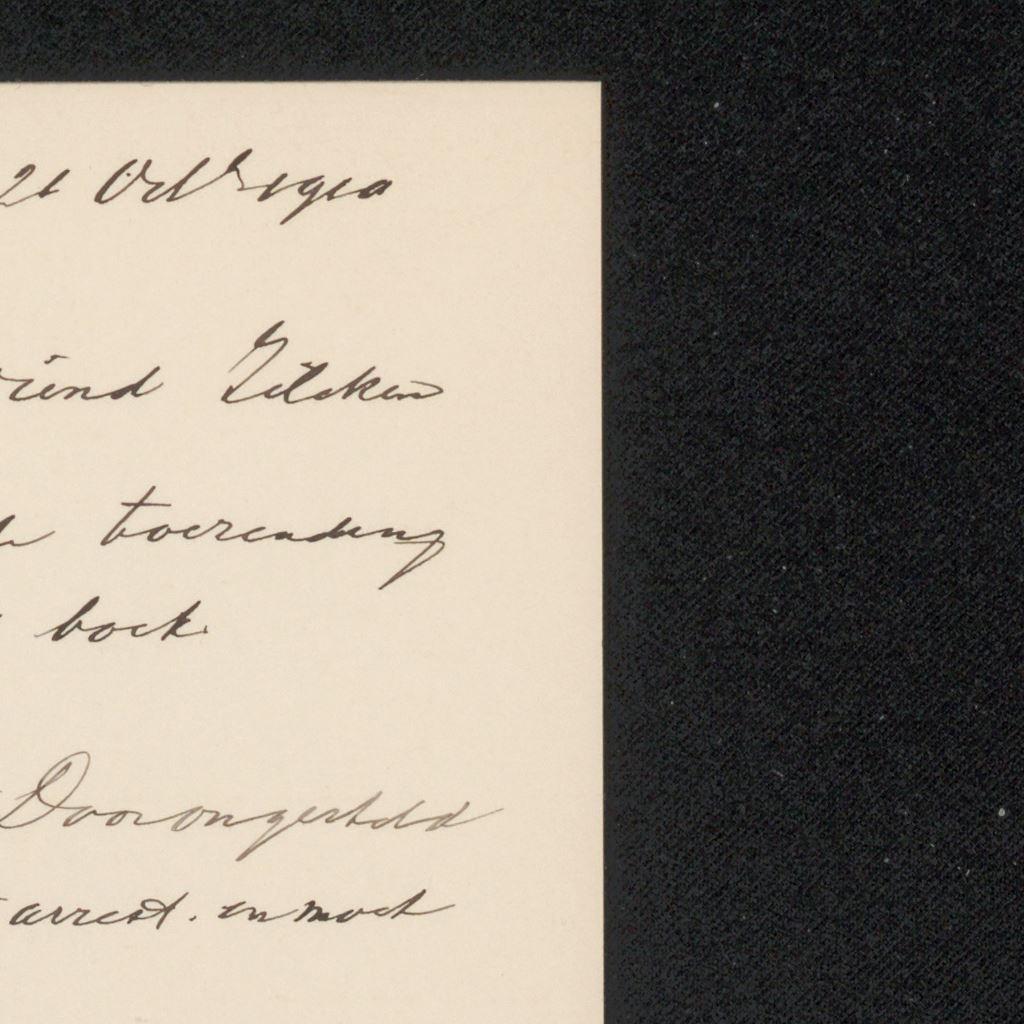 21 Oct 1910
riend Zilcken
toezending
boek.
Door ongesteld
arrest. en moet